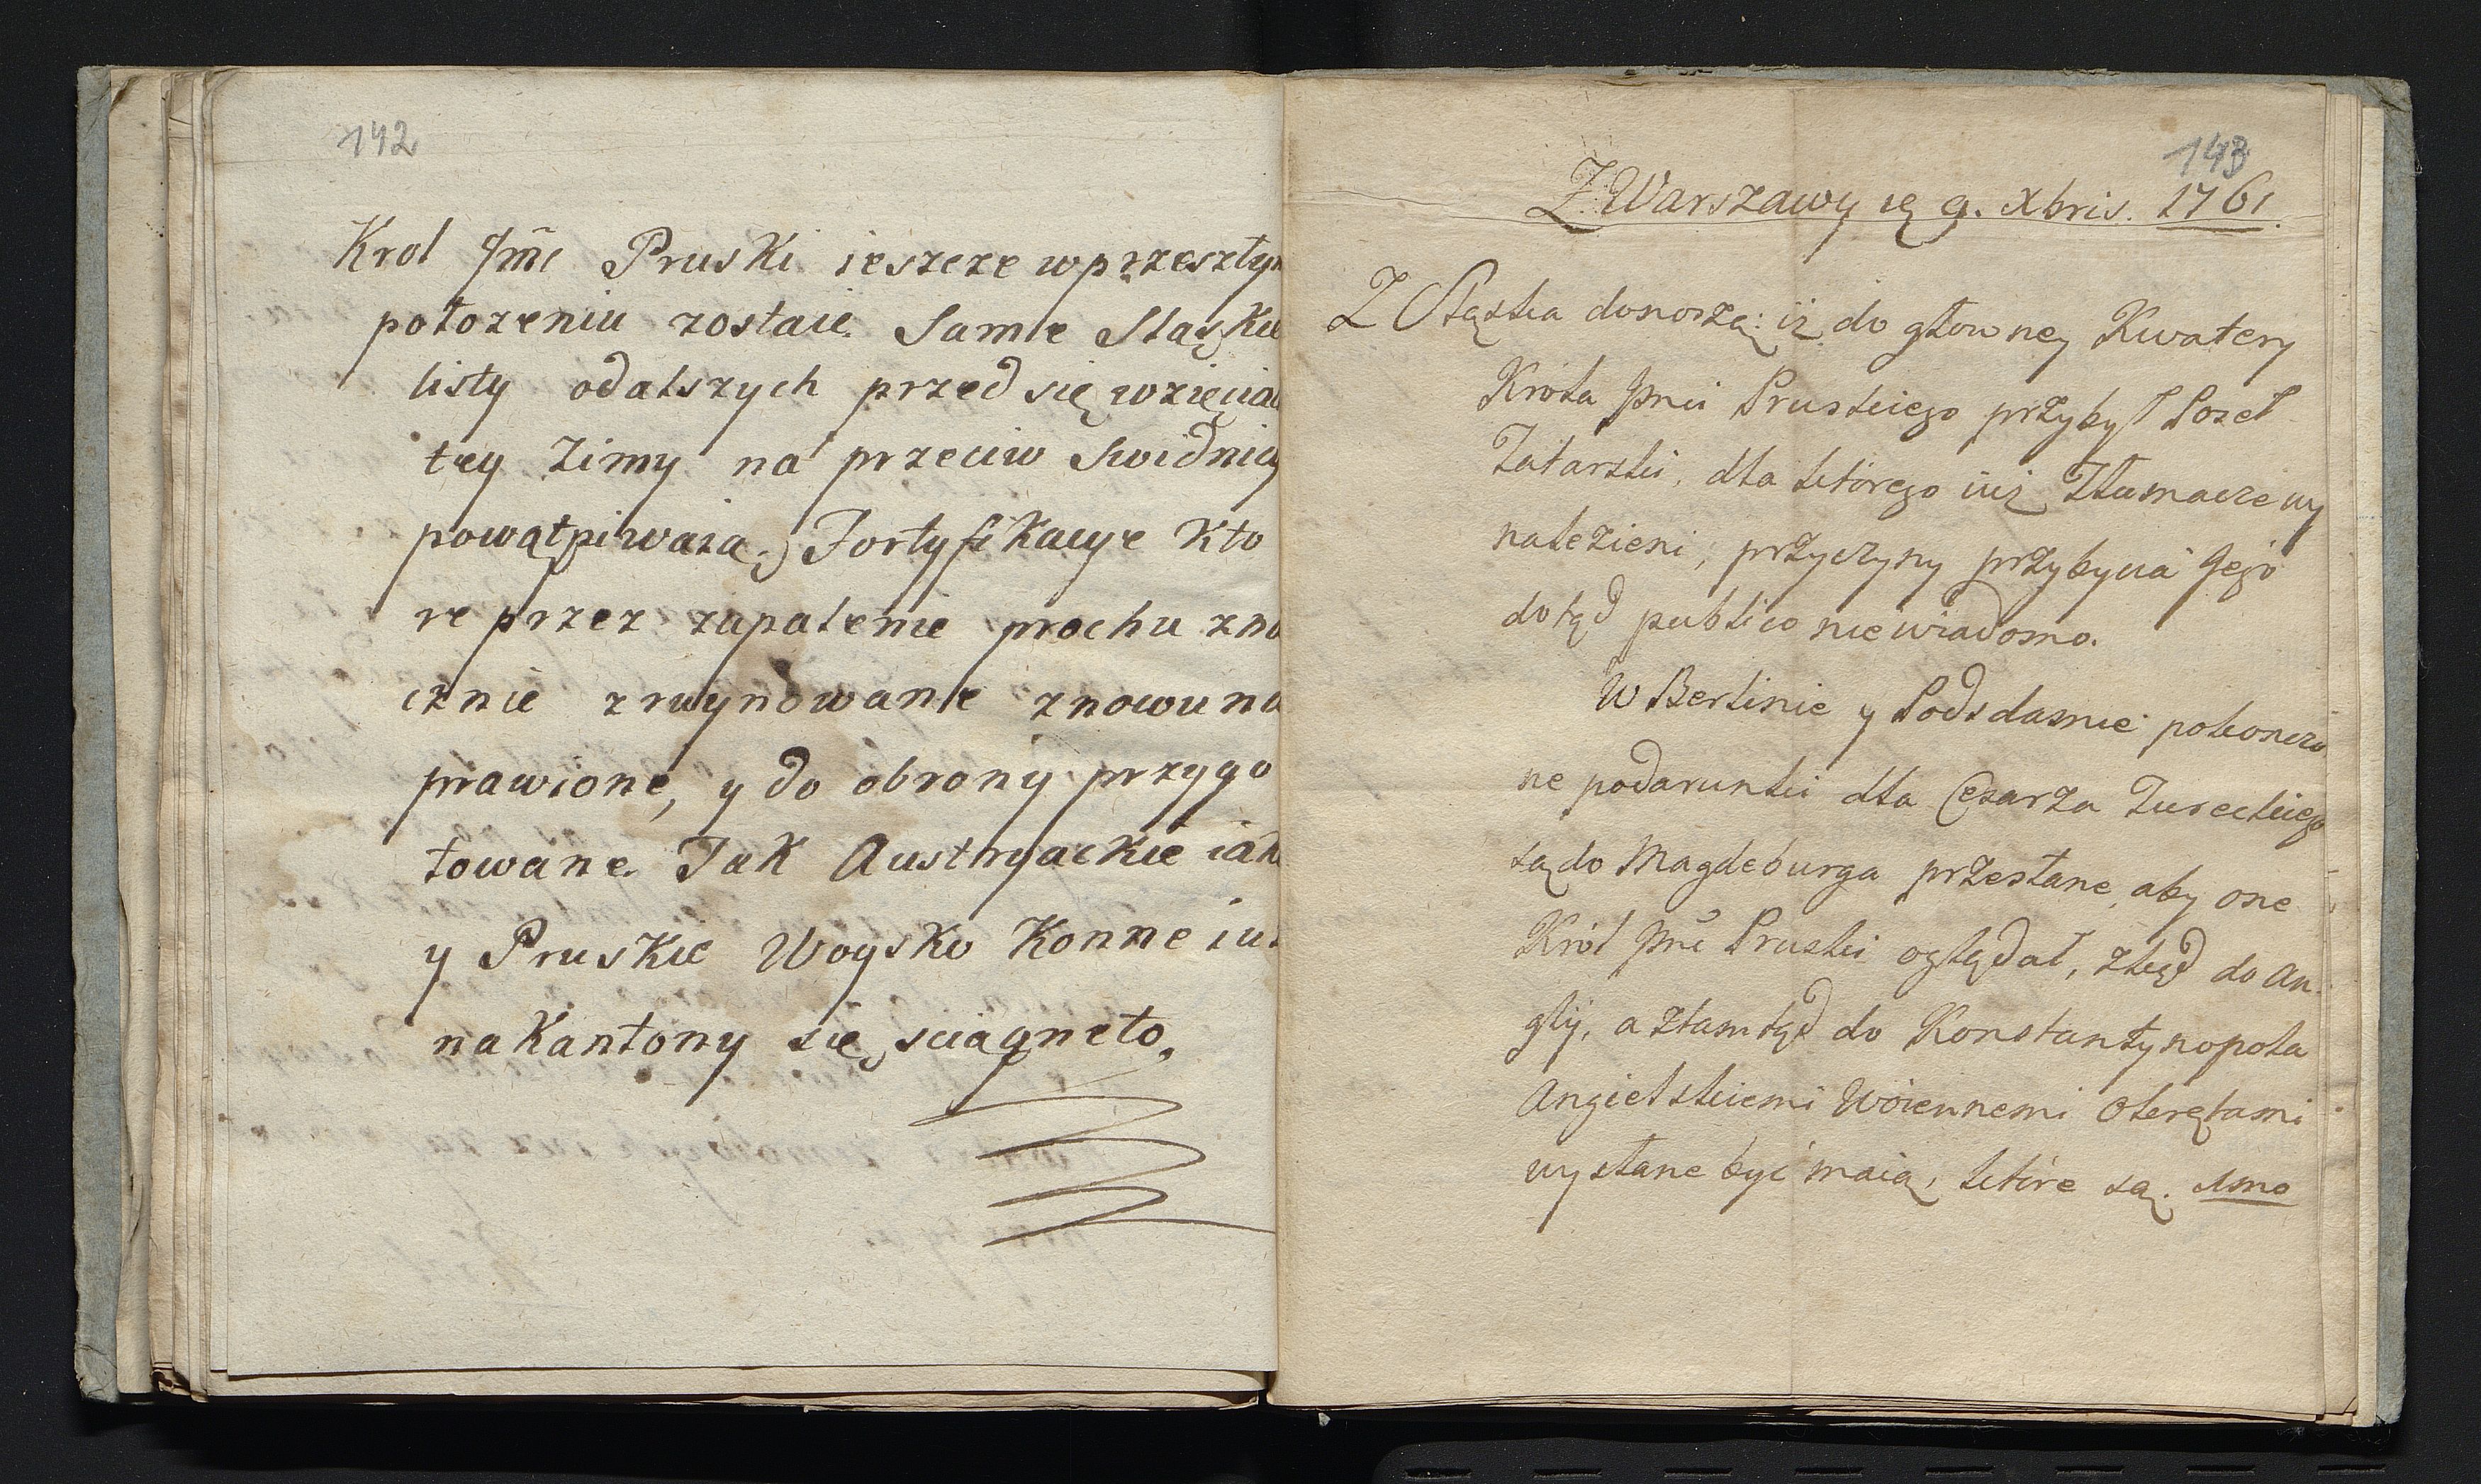 142
Krol Jmc Pruski ieszcze w przeszłym
położeniu zostaie. Samie Sląskie
listy o dalszych przed się wzięciac
tey Zimy na przeciw Swidnicy
powątpiwaią. Fortyfikacye Kto
re przez zapalenie prochu zna
cznie zruynowane znowu na
prawione, y do obrony przygo
towane. Jak Austryackie iak
y Pruskie Woysko Konne iuz
na Kantony się sciągneło.
143
Z Warszawy 19 9. Xbris. 1761.
Z Sląska donoszą: iż do głowney Kwatery
Króla Jmci Pruskiego przybył Poseł
Tatarski, dla którego iuż Tłumacze wy
nalezieni, przyczyny przybycia Jego
dotąd publico niewiadomo.
W Berlinie y Podsdamie pokonczo
ne podarunki dla Cesarza Tureckiego
są do Magdeburga przesłane, aby one
Król Jmć Pruski oglądał, zkąd do An-
glij, a ztamtąd do Konstantynopola
Angielskiemi Woiennemi Okrętami
wysłane być maią, które są. 1mo